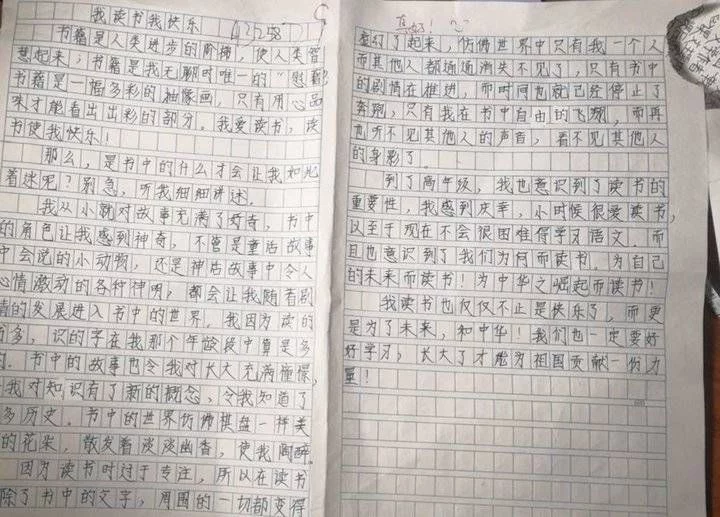 我读书我快乐
书籍是人类进步的阶梯，使人类智
慧起来；书籍是我无聊时唯一的“慰藉
书籍是一幅多彩的抽像画，只有用心品
味才能看出出彩的部分。我爱读书，读
书使我快乐！
那么，是书中的什么才会让我如此
着迷呢？别急，听我细细讲述。
我从小就对故事充满了好奇，书中
的角色让我感到神奇，不管是童话故事
中会说的小动物，还是神话故事中令人
心情激动的各种神明，都会让我随着剧
情的发展进入书中的世界。我因为读的
多，识的字在我那个年龄段中算是多
的。书中的故事也令我对长大充满憧憬，
我对知识有了新的概念，令我知道了
多历史。书中的世界仿佛棋盘一样美
的花朵，散发着淡淡幽香，使我陶醉。
因为读书时过于专注，所以在读书
除了书中的文字，周围的一切都变得
真好！
虚幻了起来，仿佛世界中只有我一个人
而其他人都通通消失不见了，只有书中
的剧情在推进，而时间也就已经停止了
奔跑，只有我在书中自由的飞翔，而再
也听不见其他人的声音，看不见其他人
的身影了。
到了高年级，我也意识到了读书的
重要性，我感到庆幸，小时候很爱读书，
以至于现在不会很困难得学习语文。而
且也意识到了我们为何而读书。为自己
的未来而读书！为中华之崛起而读书！
我读书也仅仅不止是快乐了，而更
是为了未来，和中华！我们也一定要好
好学习，长大了才能为祖国贡献一份力
量！